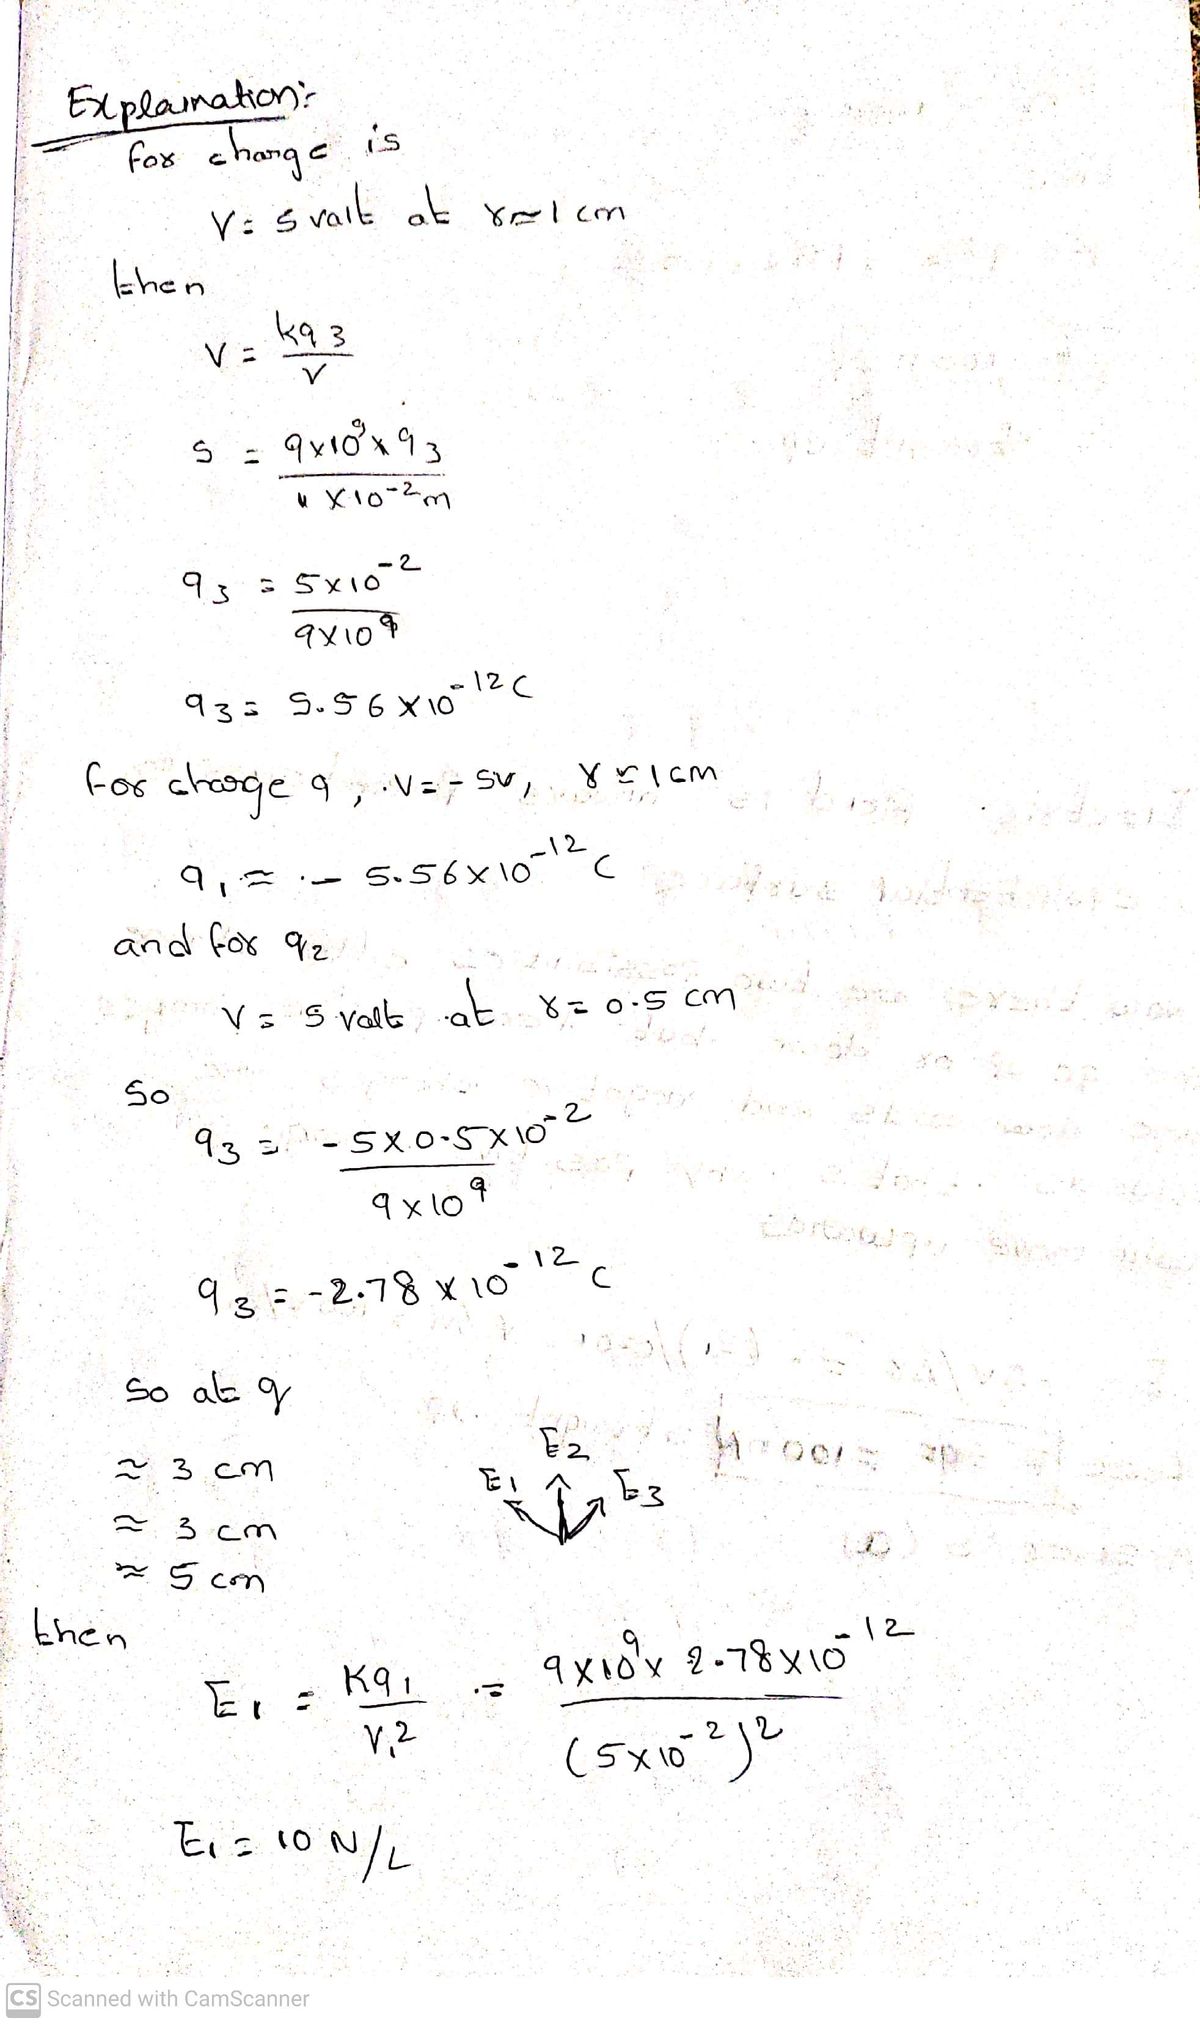 Explaination:-
for charge is
V = 5 valt at r = 1 cm
then
V = kq3 / r
5 = 9x10^9 x q3 / 1 x 10^-2 m
q3 = 5x10^-2 / 9x10^9
q3 = 5.56 x 10^-12 C
for charge q, V = -5v, r = 1 cm
q1 = - 5.56 x 10^-12 C
and for q2
V = 5 valt at r = 0.5 cm
So
q3 = - 5 x 0.5 x 10^-2 / 9 x 10^9
q3 = -2.78 x 10^-12 C
So at q
≈ 3 cm
≈ 3 cm
≈ 5 cm
E1 E2 E3
then
E1 = Kq1 / r1^2 = 9x10^9 x 2.78 x 10^-12 / (5x10^-2)^2
E1 = 10 N/L
CS Scanned with CamScanner